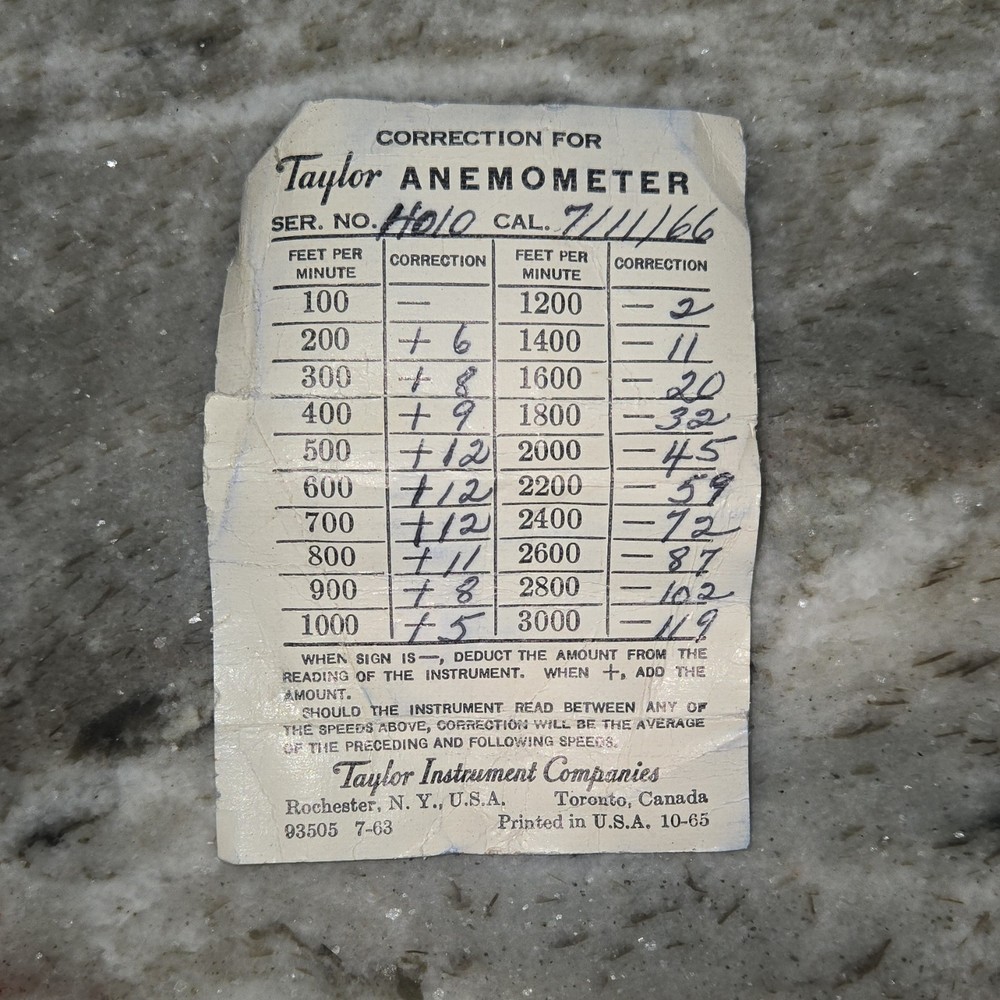 CORRECTION FOR
Taylor ANEMOMETER
SER. NO. H010 CAL. 7/11/66
FEET PER MINUTE CORRECTION FEET PER MINUTE CORRECTION
100 — 1200 — 2
200 + 6 1400 — 11
300 + 8 1600 — 20
400 + 9 1800 — 32
500 + 12 2000 — 45
600 + 12 2200 — 59
700 + 12 2400 — 72
800 + 11 2600 — 87
900 + 8 2800 — 102
1000 + 5 3000 — 119
WHEN SIGN IS —, DEDUCT THE AMOUNT FROM THE
READING OF THE INSTRUMENT. WHEN +, ADD THE
AMOUNT.
SHOULD THE INSTRUMENT READ BETWEEN ANY OF
THE SPEEDS ABOVE, CORRECTION WILL BE THE AVERAGE
OF THE PRECEDING AND FOLLOWING SPEEDS.
Taylor Instrument Companies
Rochester, N. Y., U.S.A. Toronto, Canada
93505 7-63 Printed in U.S.A. 10-65